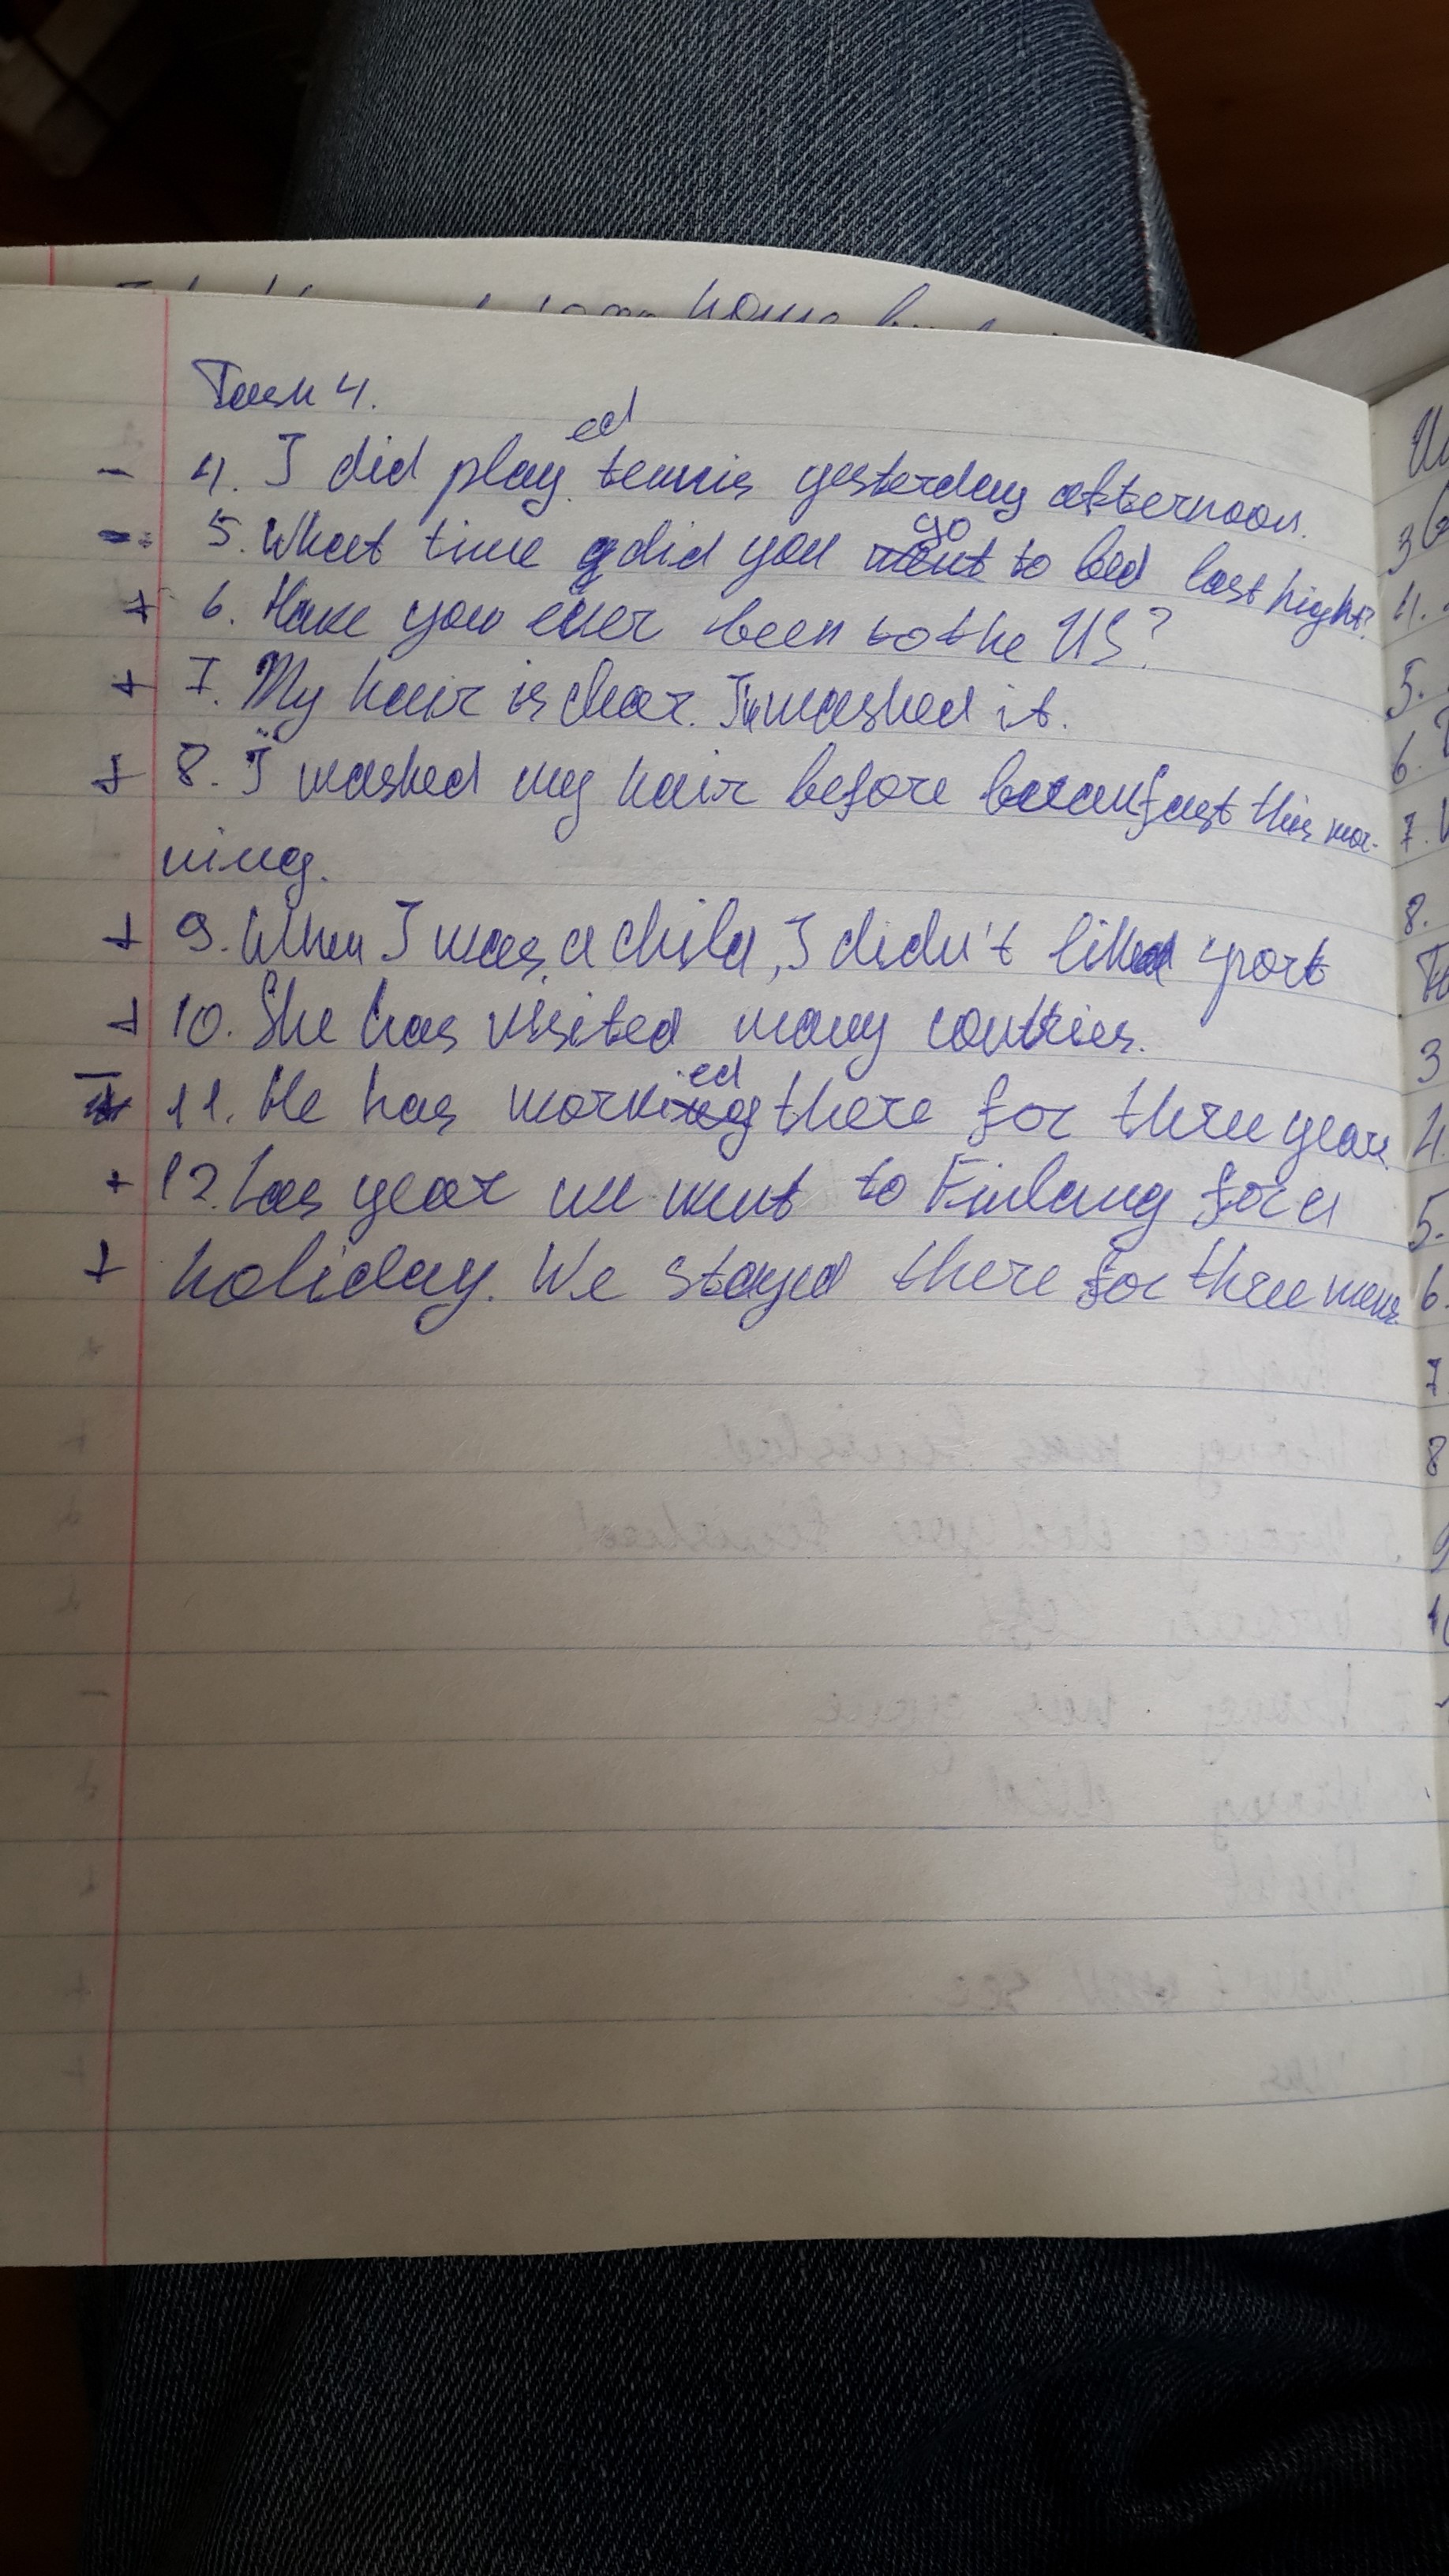 home
Task 4.
ed
- 4. I did play tennis yesterday afternoon.
go
- 5. What time did you went to bed last hight?
+ 6. Have you ever been to the US?
+ 7. My hair is clear. I washed it.
+ 8. I washed my hair before breakfast this mor-
ning.
+ 9. When I was a child, I didn't like sport
+ 10. She has visited many coutries.
ed
- 11. He has working there for three years.
+ 12. Las year we went to Finlang for a
+ holiday. We stayed there for three
3
4.
5.
6.
7.
8.
3
4.
5.
6.
7
8
9
10